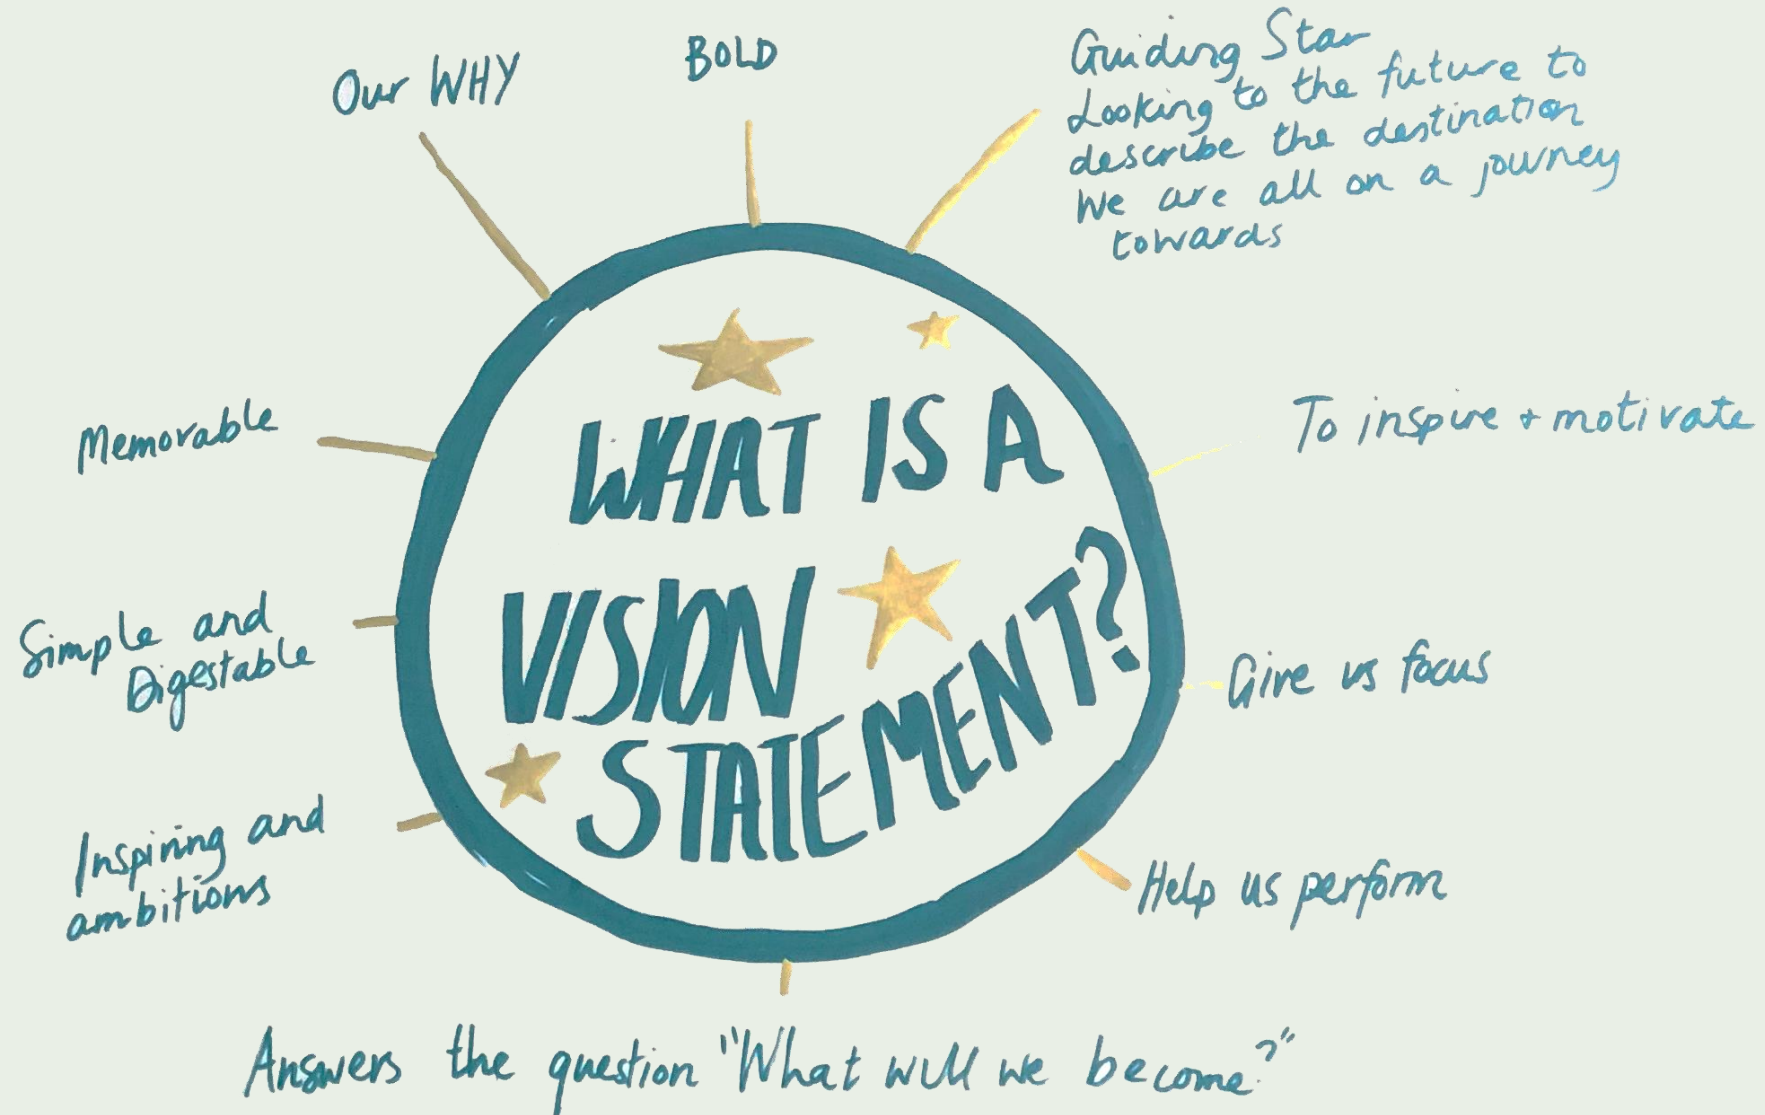 Our WHY
BOLD
Guiding Star
Looking to the future to
describe the destination
We are all on a journey
towards
Memorable
WHAT IS A
VISION
STATEMENT?
To inspire + motivate
Simple and
Digestable
Give us focus
Inspiring and
ambitions
Help us perform
Answers the question "What will we become?"